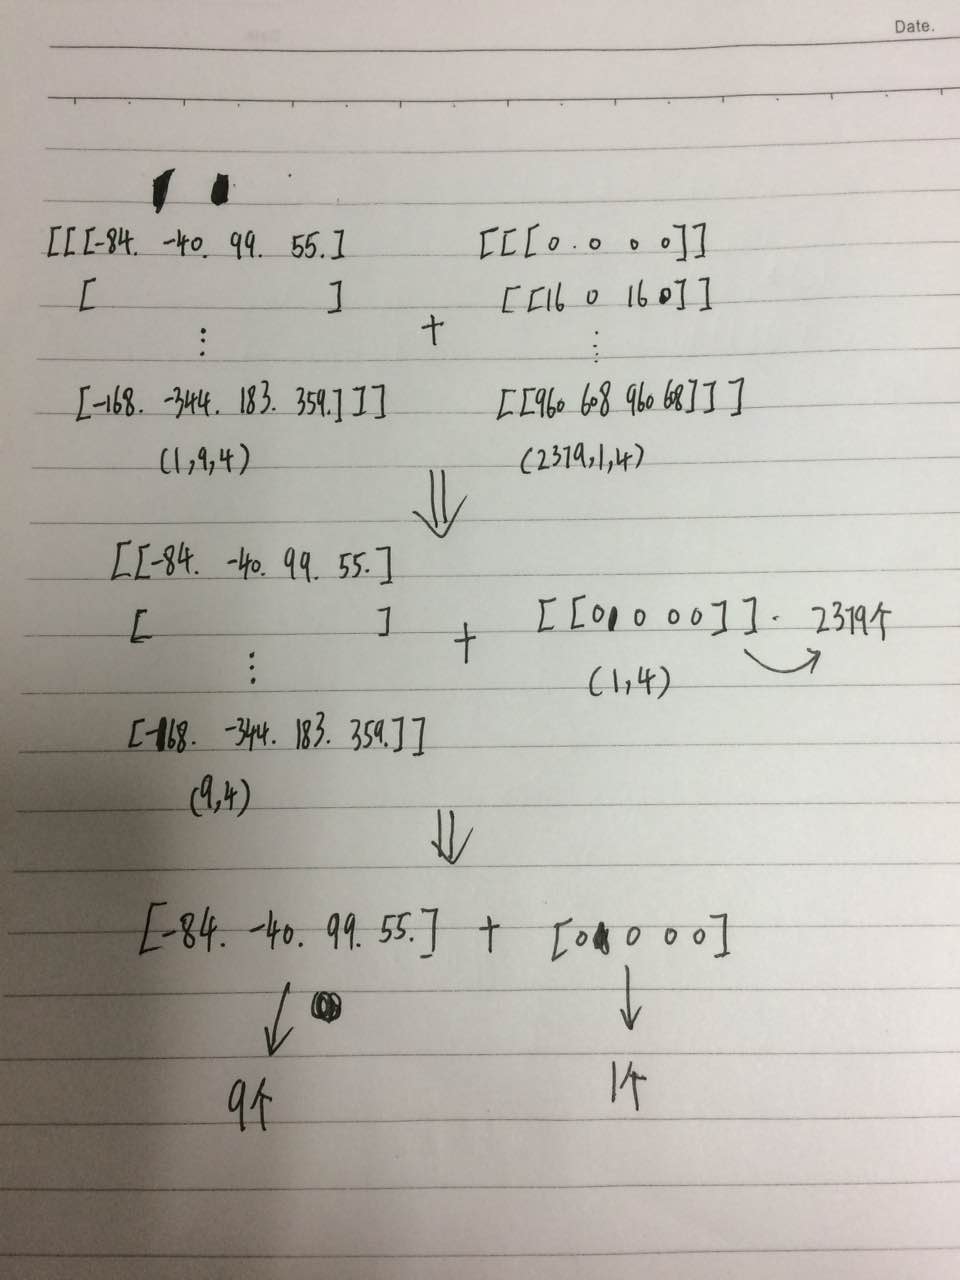 Date.
[[[-84. -40. 99. 55.] [[[0. 0 0 0]]
[ ] + [[16 0 16 0]]
⋮ ⋮
[-168. -344. 183. 359.]]] [[960 608 960 608]]]
(1,9,4) (2379,1,4)
⇓
[[-84. -40. 99. 55.]
[ ] + [[0 0 0 0]]. 2379个
⋮ (1,4)
[-168. -344. 183. 359.]]
(9,4)
⇓
[-84. -40. 99. 55.] + [0 0 0 0]
↓ ↓
9个 1个